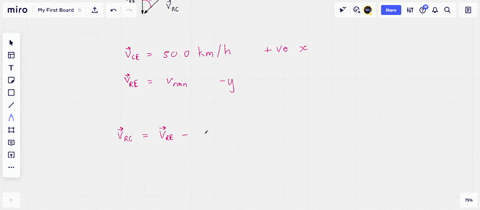 miro My First Board Share
V⃗RC
V⃗CE = 50.0 km/h +ve x
V⃗RE = Vran -y
V⃗RC = V⃗RE -
75%